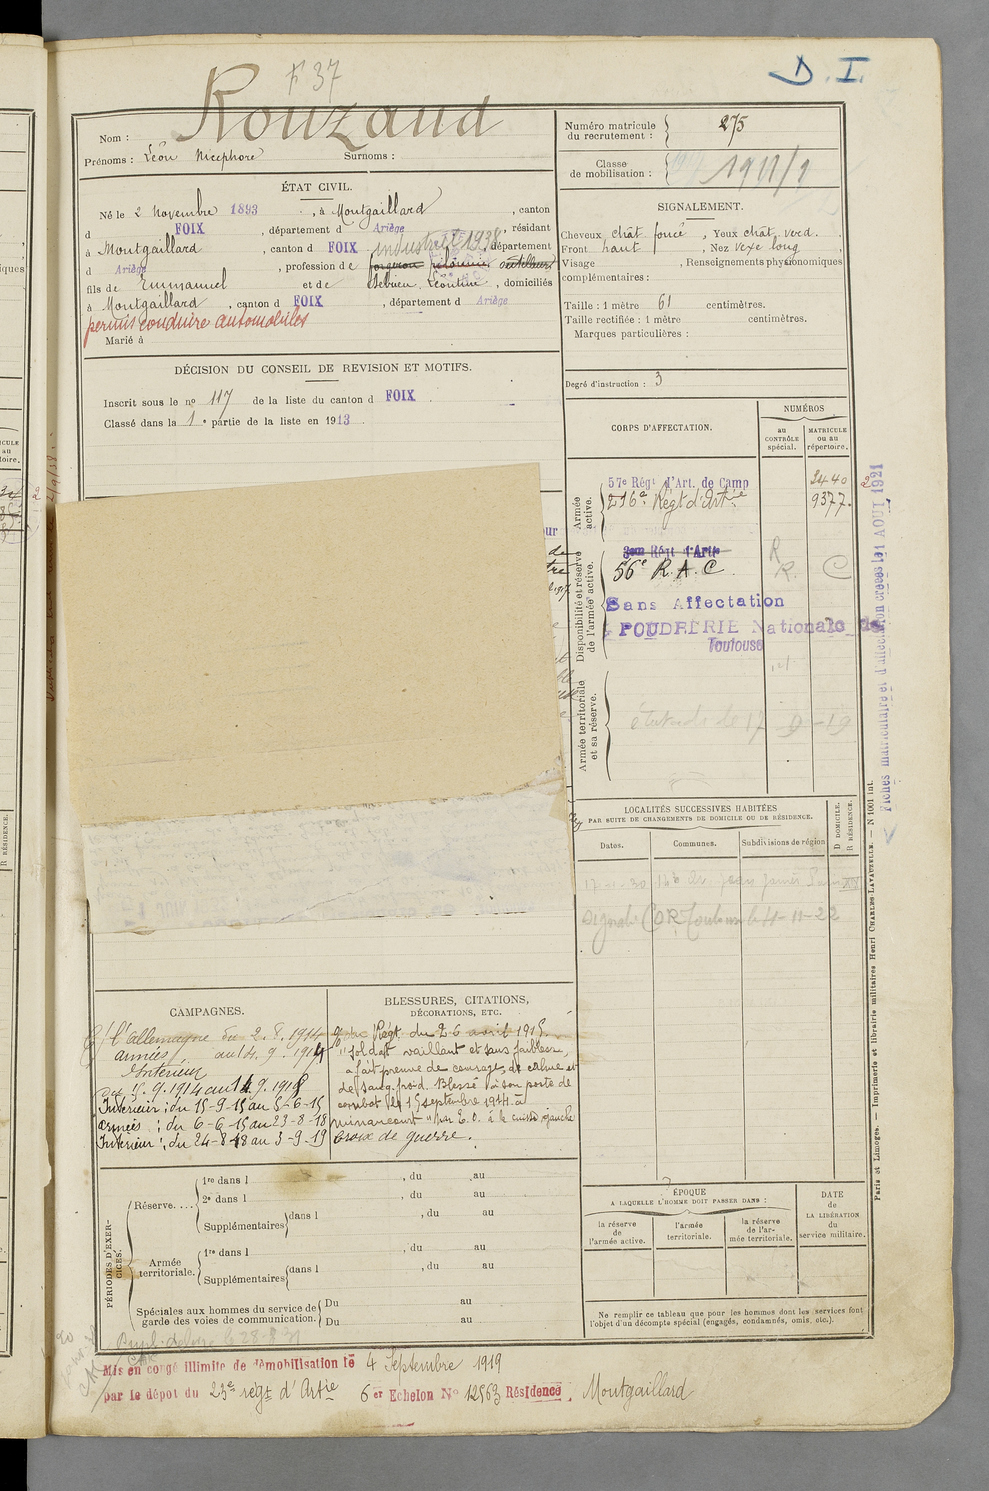 F 37
D. I.
Rouzaud
Nom :
Prénoms : Léon Nicéphore Surnoms :
Numéro matricule du recrutement : 275
Classe de mobilisation : 1911/1
ÉTAT CIVIL.
Né le 2 Novembre 1893, à Montgaillard, canton
d FOIX, département d Ariège, résidant
à Montgaillard, canton d FOIX, département
industriel 1938
d Ariège, profession de forgeron
fils de Emmanuel et de Léontine, domiciliés
à Montgaillard, canton d FOIX, département d Ariège
permis conduire automobiles
Marié à
SIGNALEMENT.
Cheveux chât foncé, Yeux chât. verd.
Front haut, Nez vexe long
Visage , Renseignements physionomiques
complémentaires :
Taille : 1 mètre 61 centimètres.
Taille rectifiée : 1 mètre centimètres.
Marques particulières :
Degré d'instruction : 3
DÉCISION DU CONSEIL DE REVISION ET MOTIFS.
Inscrit sous le no 117 de la liste du canton d FOIX
Classé dans la 1e partie de la liste en 1913.
CORPS D'AFFECTATION.
NUMÉROS
au CONTRÔLE spécial.
MATRICULE ou au répertoire.
Armée active.
57e Régt d'Art. de Camp 3440
216e Régt d'Artie 9377.
Disponibilité et réserve de l'armée active.
3eme Régt d'Artie R
56e R.A.C. R. C
Sans Affectation
POUDRERIE Nationale de
Toulouse
Armée territoriale et sa réserve.
Fiches matriculaire et d'affectation créées le 1 AOUT 1921
LOCALITÉS SUCCESSIVES HABITÉES
PAR SUITE DE CHANGEMENTS DE DOMICILE OU DE RÉSIDENCE.
Dates.
Communes.
Subdivisions de région
D DOMICILE.
R RÉSIDENCE.
CAMPAGNES.
C/ l'allemagne du 2. 8. 1914
armées au 14. 9. 1914
Intérieur
du 15. 9. 1914 au 14. 9. 1915
Intérieur : du 15-9-15 au 5-6-15
armées : du 6-6-15 au 23-8-18
Intérieur : du 24-8-18 au 3-9-19
BLESSURES, CITATIONS,
DÉCORATIONS, ETC.
Régt du 26 avril 1915.
"soldat vaillant et sans faiblesse,
a fait preuve de courage, de calme et
de sang froid. Blessé à son poste de
combat le 15 septembre 1914 à
minaucourt" par E. O. à la cuisse gauche
Croix de guerre.
PÉRIODES D'EXERCICES.
Réserve.... 1re dans l , du au
2e dans l , du au
Supplémentaires dans l , du au
Armée territoriale. 1re dans l , du au
Supplémentaires dans l , du au
Spéciales aux hommes du service de garde des voies de communication. Du au
Du au
ÉPOQUE
A LAQUELLE L'HOMME DOIT PASSER DANS :
la réserve de l'armée active.
l'armée territoriale.
la réserve de l'armée territoriale.
DATE de LA LIBÉRATION du service militaire.
Ne remplir ce tableau que pour les hommes dont les services font
l'objet d'un décompte spécial (engagés, condamnés, omis, etc.).
Paris et Limoges. — Imprimerie et librairie militaires Henri CHARLES-LAVAUZELLE. — N 1001 int.
Mis en congé illimité de démobilisation le 4 Septembre 1919
par le dépôt du 23e régt d'Artie 6er Echelon No 12563 Résidence, Montgaillard